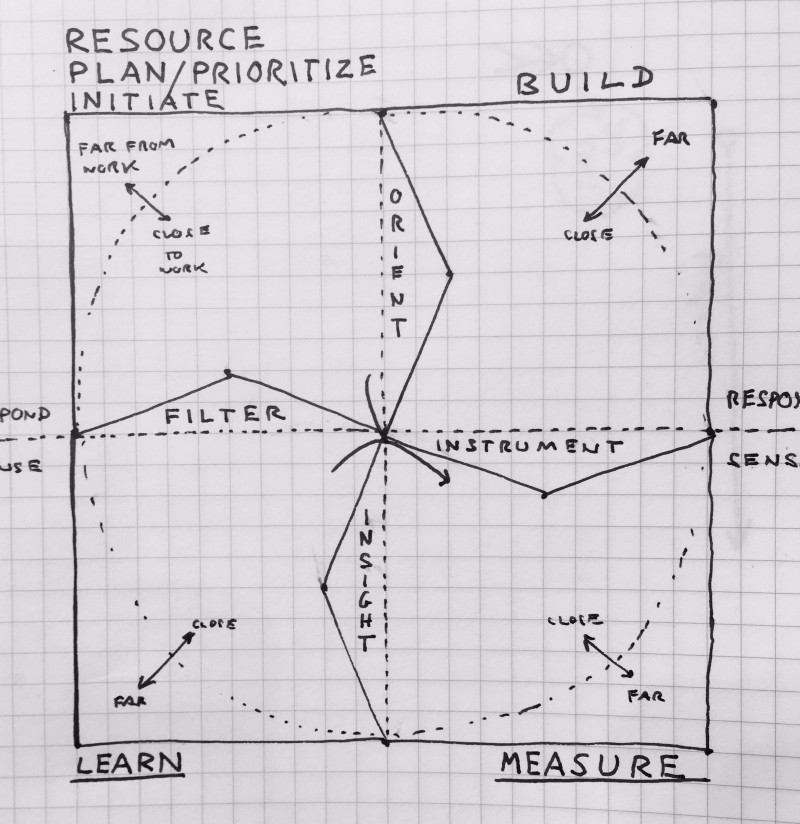 RESOURCE
PLAN/PRIORITIZE
INITIATE
BUILD
FAR FROM
WORK
CLOSE
TO
WORK
FAR
CLOSE
ORIENT
FILTER
INSTRUMENT
POND
RESPON
USE
SENS
INSIGHT
CLOSE
FAR
CLOSE
FAR
LEARN
MEASURE